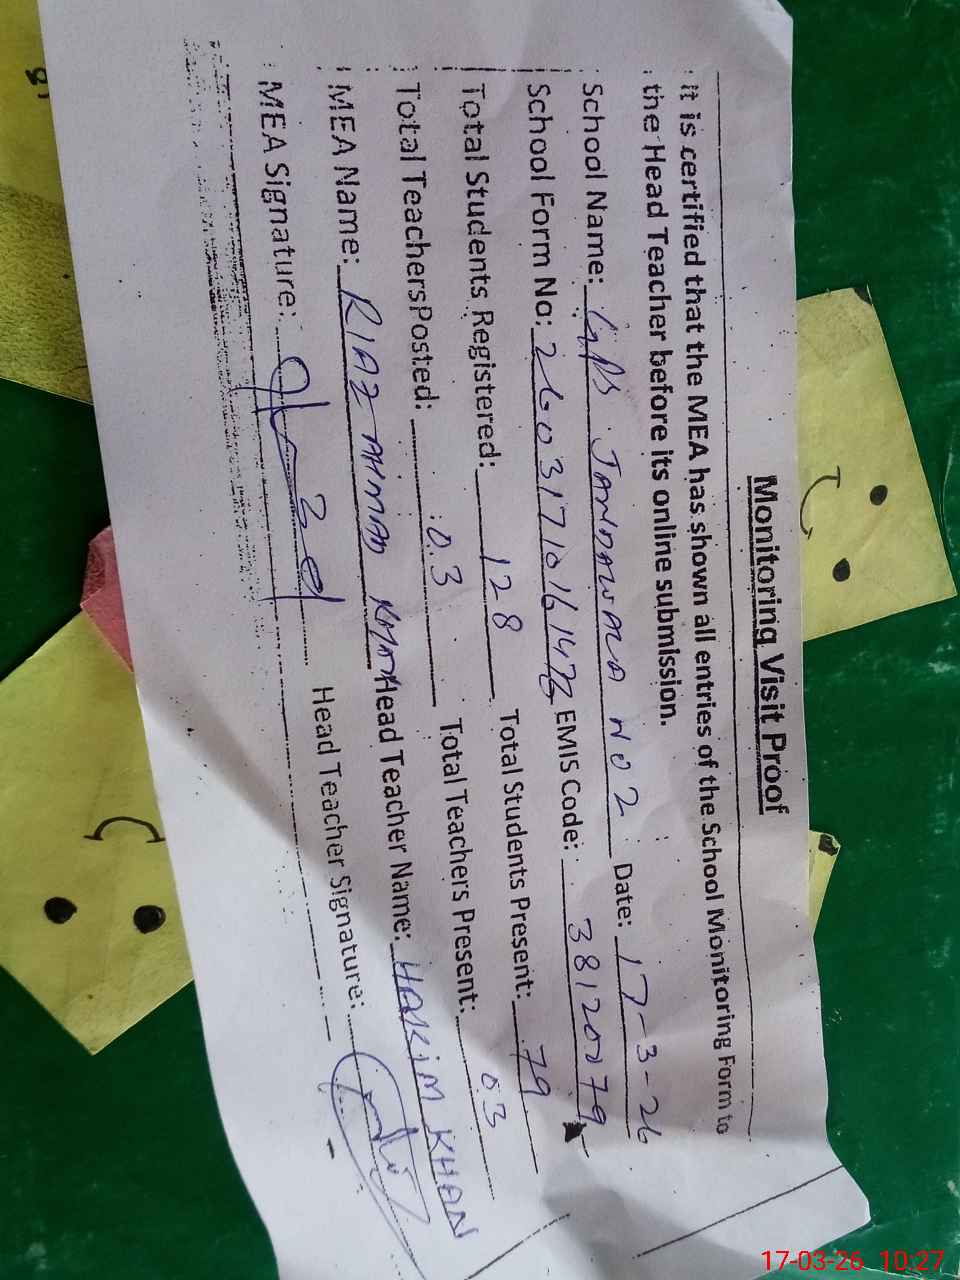 Monitoring Visit Proof
It is certified that the MEA has shown all entries of the School Monitoring Form to
the Head Teacher before its online submission.
School Name: GPS JANDAWALA NO 2 Date: 17-3-26
School Form No: EMIS Code: 38120079
Total Students Registered: 128 Total Students Present: 79
Total Teachers Posted: 03 Total Teachers Present: 03
MEA Name: RIAZ AHMAD KHAN Head Teacher Name: HAKIM KHAN
MEA Signature: Head Teacher Signature:
17-03-26 10:27